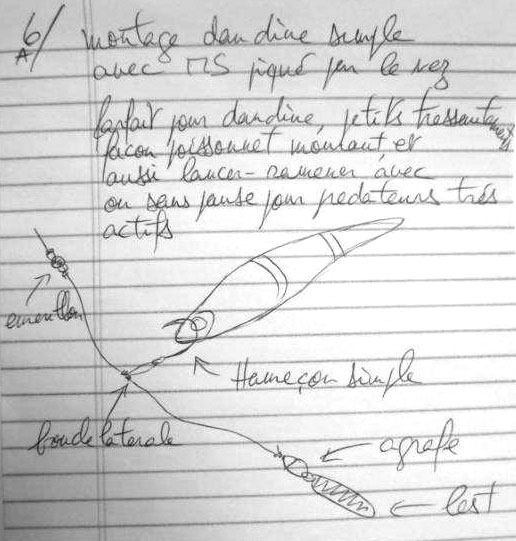 6/A
montage dandine simple
avec MS piqué par le nez
parfait pour dandine, petits tressautements
façon poissonnet montant et
aussi lancer-ramener avec
ou sans pause pour predateurs très
actifs
emerillon
Hameçon simple
boucle laterale
agrafe
lest